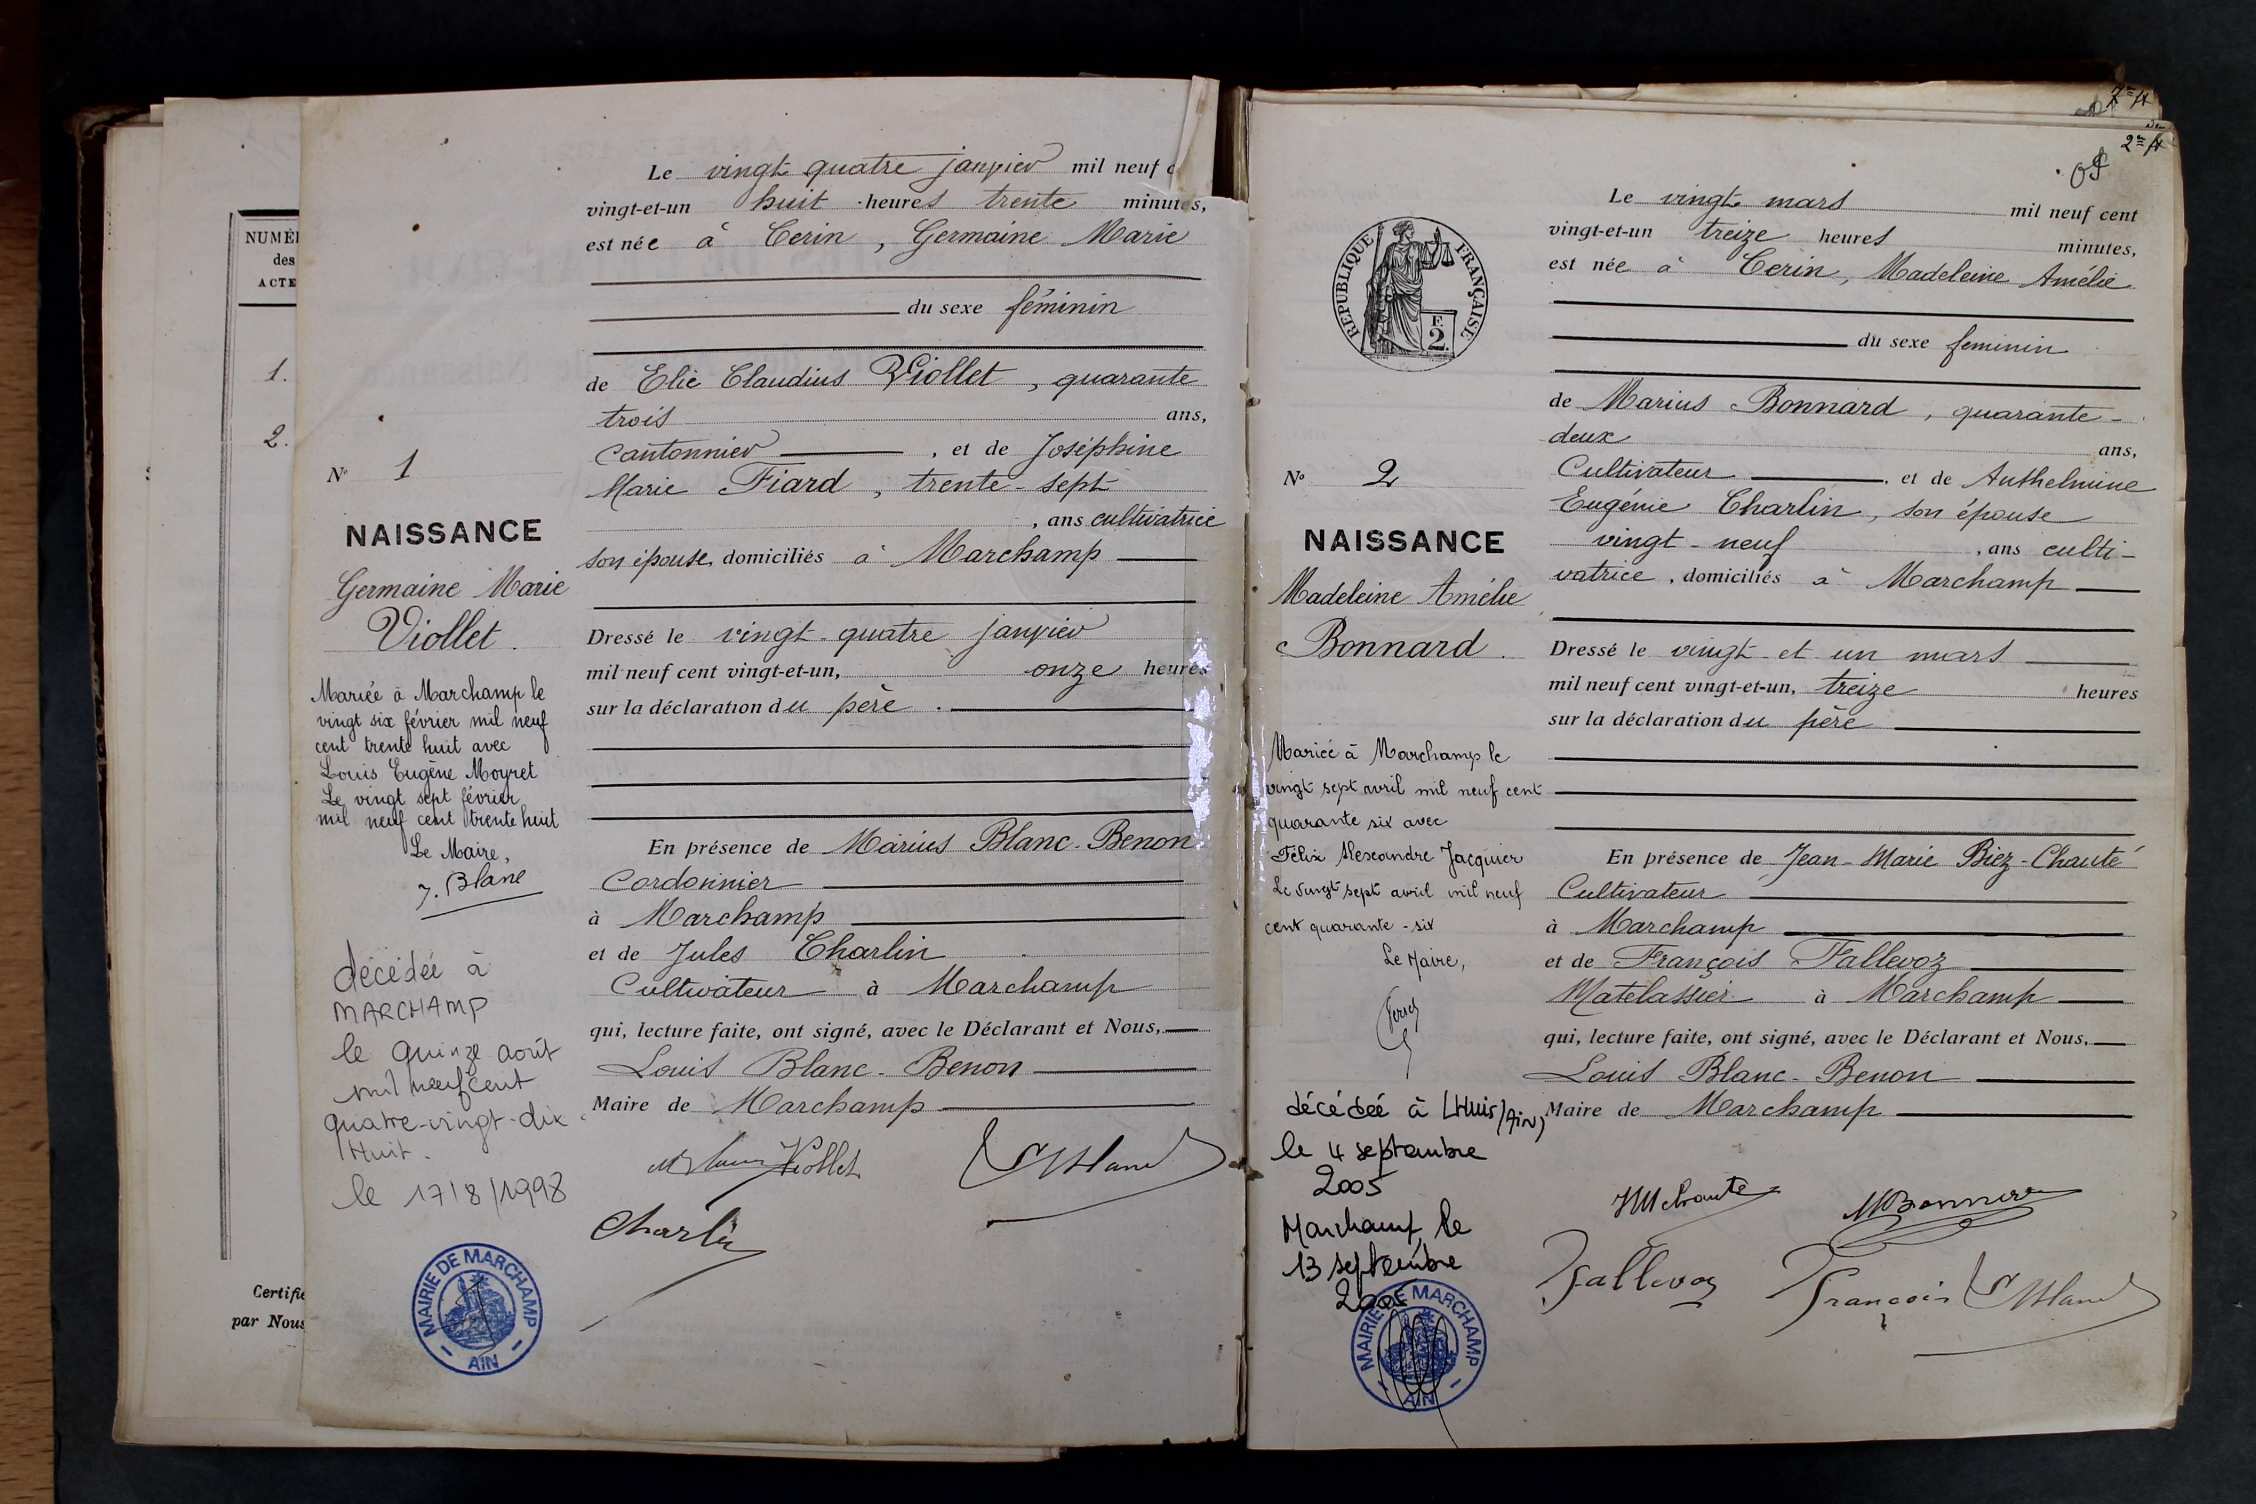 NUMÉ
des
ACTE
1.
2.
Certifie
par Nous
Le vingt quatre janvier mil neuf c
vingt-et-un huit heures trente minutes,
est née à Cerin, Germaine Marie
du sexe féminin
de Elie Claudius Viollet, quarante
trois ans,
Cantonnier, et de Joséphine
Marie Fiard, trente-sept
, ans cultivatrice
son épouse, domiciliés à Marchamp
Dressé le vingt-quatre janvier
mil neuf cent vingt-et-un, onze heures
sur la déclaration du père.
En présence de Marius Blanc-Benon
Cordonnier
à Marchamp
et de Jules Charlin
Cultivateur à Marchamp
qui, lecture faite, ont signé, avec le Déclarant et Nous,
Louis Blanc-Benon
Maire de Marchamp
Viollet
Charlin
No 1
NAISSANCE
Germaine Marie
Viollet.
Mariée à Marchamp le
vingt six février mil neuf
cent trente huit avec
Louis Eugène Moyret
Le vingt sept février
mil neuf cent trente huit
Le Maire,
J. Blanc
décédée à
MARCHAMP
le quinze août
mil neuf cent
quatre-vingt-dix
Huit.
le 17/8/1998
MAIRIE DE MARCHAMP
- AIN -
2me ft
RÉPUBLIQUE FRANÇAISE
F.
2.
Le vingt mars mil neuf cent
vingt-et-un treize heures minutes,
est née à Cerin, Madeleine Amélie
du sexe feminin
de Marius Bonnard, quarante-
deux ans,
Cultivateur, et de Anthelmine
Eugénie Charlin, son épouse
vingt-neuf, ans culti-
vatrice, domiciliés à Marchamp
Dressé le vingt et un mars
mil neuf cent vingt-et-un, treize heures
sur la déclaration du père
En présence de Jean-Marie Biez-Chanté
Cultivateur
à Marchamp
et de François Fallevoz
Matelassier à Marchamp
qui, lecture faite, ont signé, avec le Déclarant et Nous,
Louis Blanc-Benon
Maire de Marchamp
MBonnard
Fallevoz François
No 2
NAISSANCE
Madeleine Amélie
Bonnard.
Mariée à Marchamp le
vingt sept avril mil neuf cent
quarante six avec
Félix Alexandre Jacquier
Le vingt sept avril mil neuf
cent quarante-six
Le Maire,
décédée à LHuis (Ain)
le 4 septembre
2005
Marchamp, le
13 septembre
2005
MAIRIE DE MARCHAMP
- AIN -